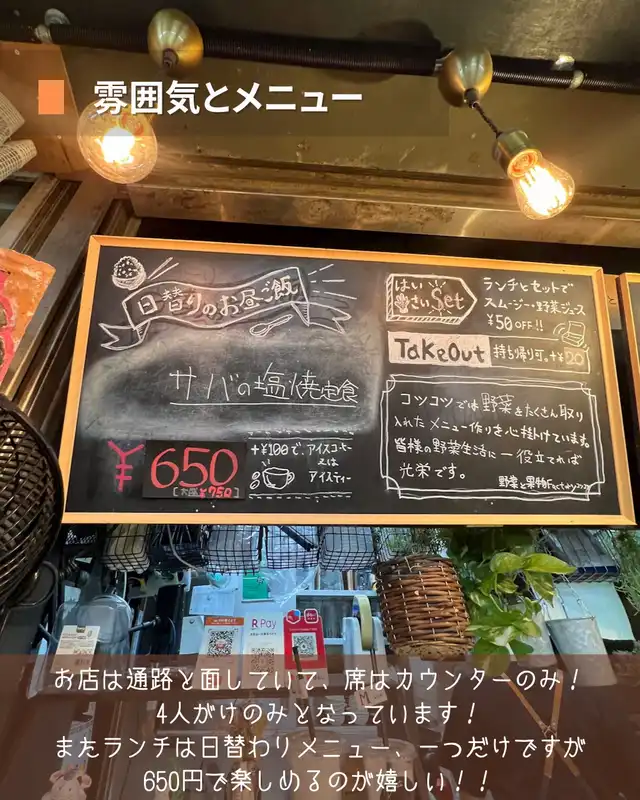 雰囲気とメニュー
日替りのお昼ご飯
サバの塩焼定食
¥650
+¥100で、アイスコーヒー
又は
アイスティー
Set
ランチとセットで
スムージー・野菜ジュース
¥50 OFF!!
TaKeOut 持ち帰り可。+¥20
コツコツでは野菜をたくさん取り
入れたメニュー作りを心掛けています。
皆様の野菜生活に一役立てれば
光栄です。
野菜と果物
R Pay
お店は通路と面していて、席はカウンターのみ！
4人がけのみとなっています！
またランチは日替わりメニュー、一つだけですが
650円で楽しめるのが嬉しい！！